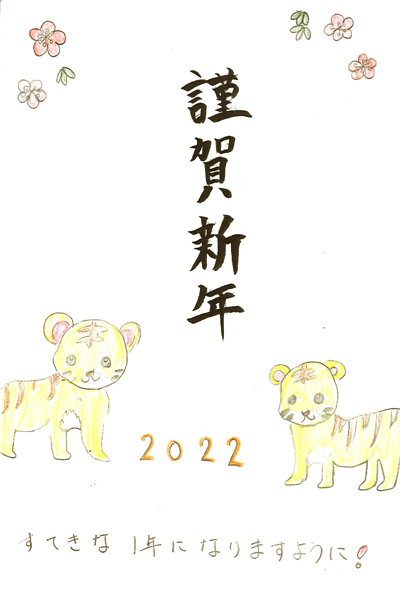 謹賀新年
2022
すてきな1年になりますように!